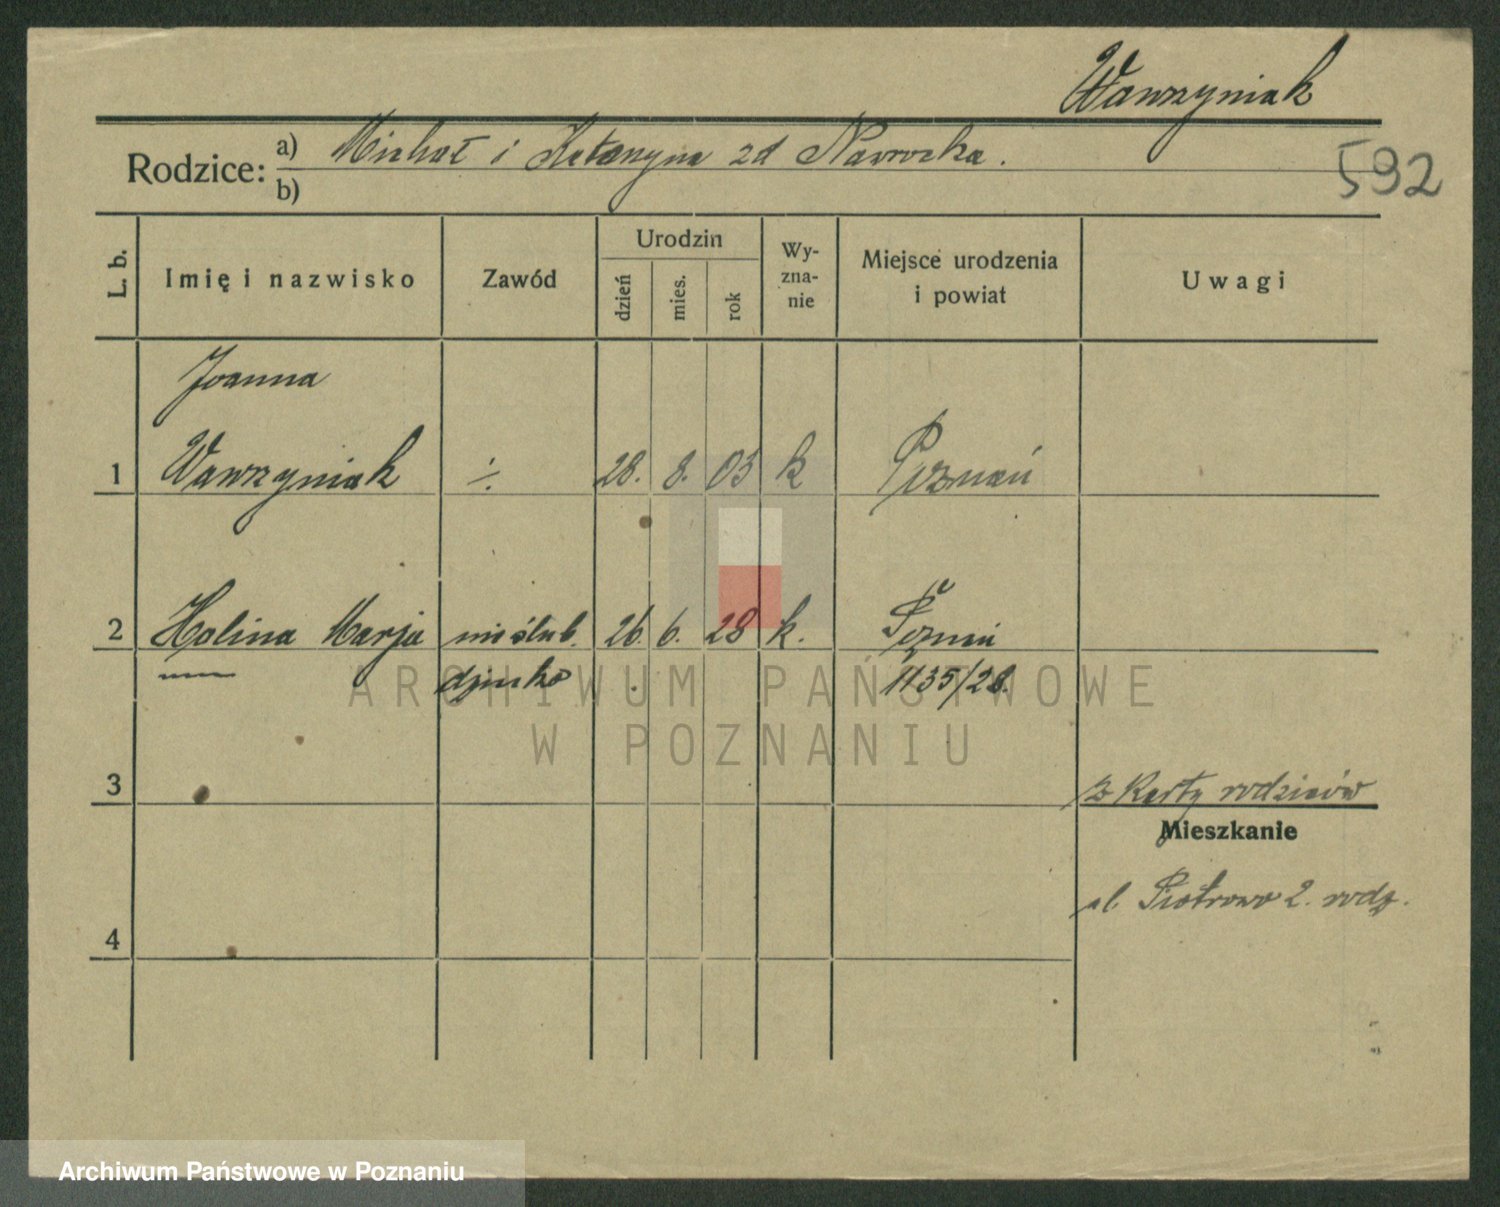 Wawrzyniak
Rodzice: a) Michał i Katarzyna zd Nawrocka.
b)
592
L. b.
Imię i nazwisko
Zawód
Urodzin
dzień
mies.
rok
Wy-
zna-
nie
Miejsce urodzenia
i powiat
Uwagi
Joanna
1 Wawrzyniak ./. 28. 8. 03 k Poznań
2 Halina Marja nieślub. 26. 6. 28 k. Poznań
dziecko 1135/28.
ARCHIWUM PAŃSTWOWE
W POZNANIU
3
z karty rodziców
Mieszkanie
ul. Piotrowo 2. rodz.
4
Archiwum Państwowe w Poznaniu